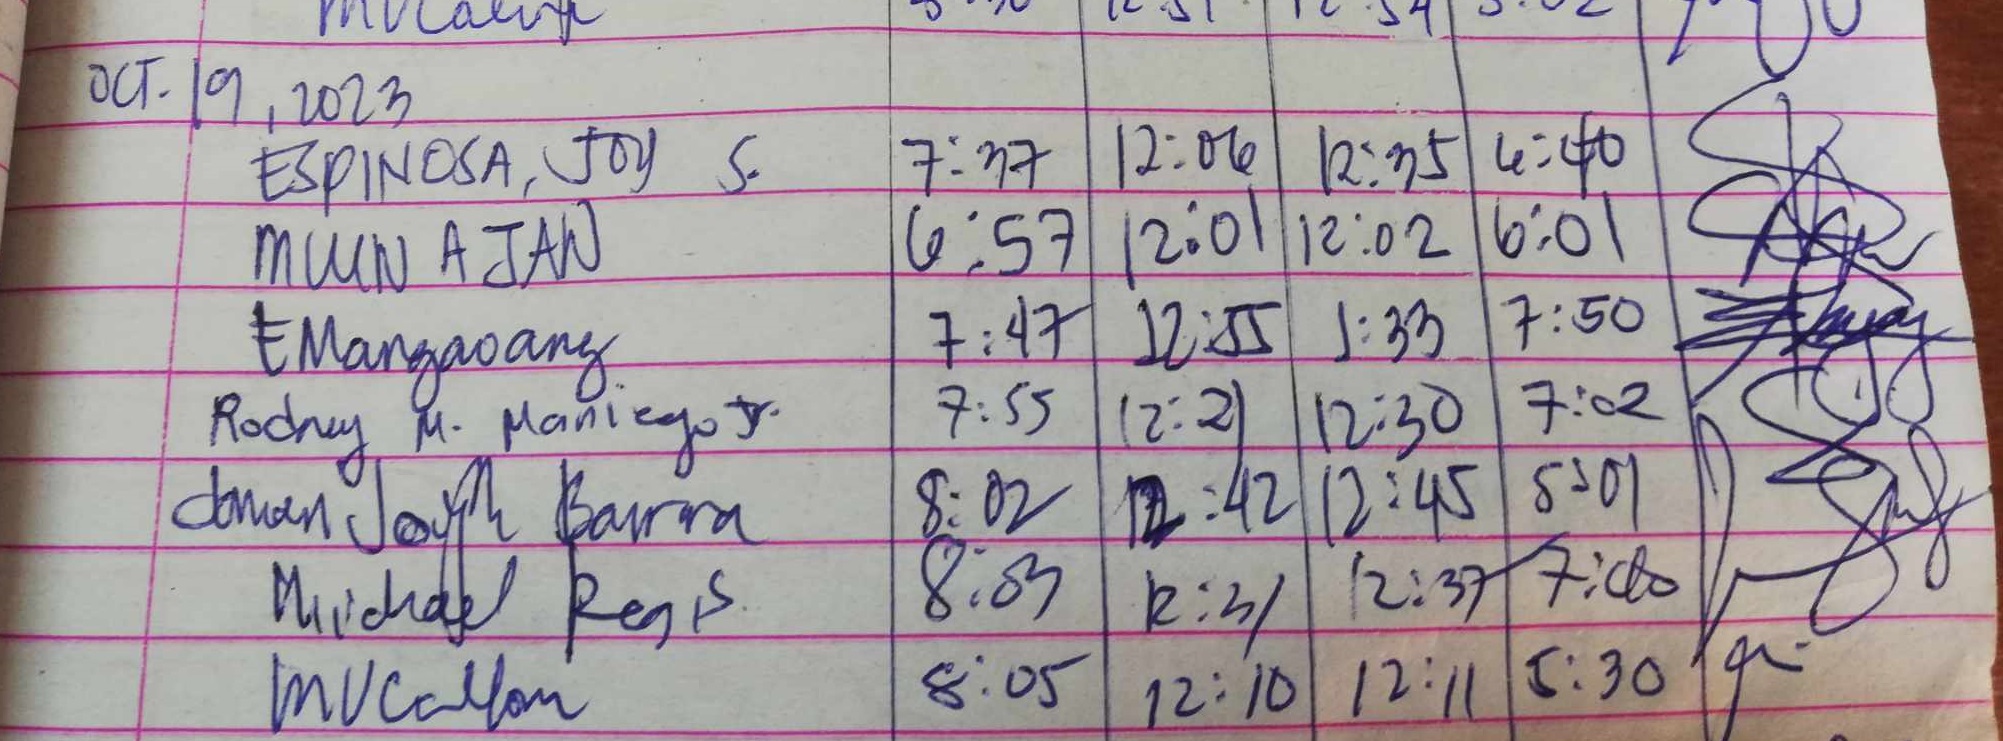 OCT. 19, 2023
ESPINOSA, JOY S. 7:37 12:06 12:35 6:40
MUUN A JAN 6:57 12:01 12:02 6:01
EMangaoang 7:47 12:55 1:33 7:50
Rodney M. Maniego Jr. 7:55 12:21 12:30 7:02
Joseph 8:02 12:42 12:45 5:01
Michael Regis 8:03 12:31 12:37
8:05 12:10 12:11 5:30